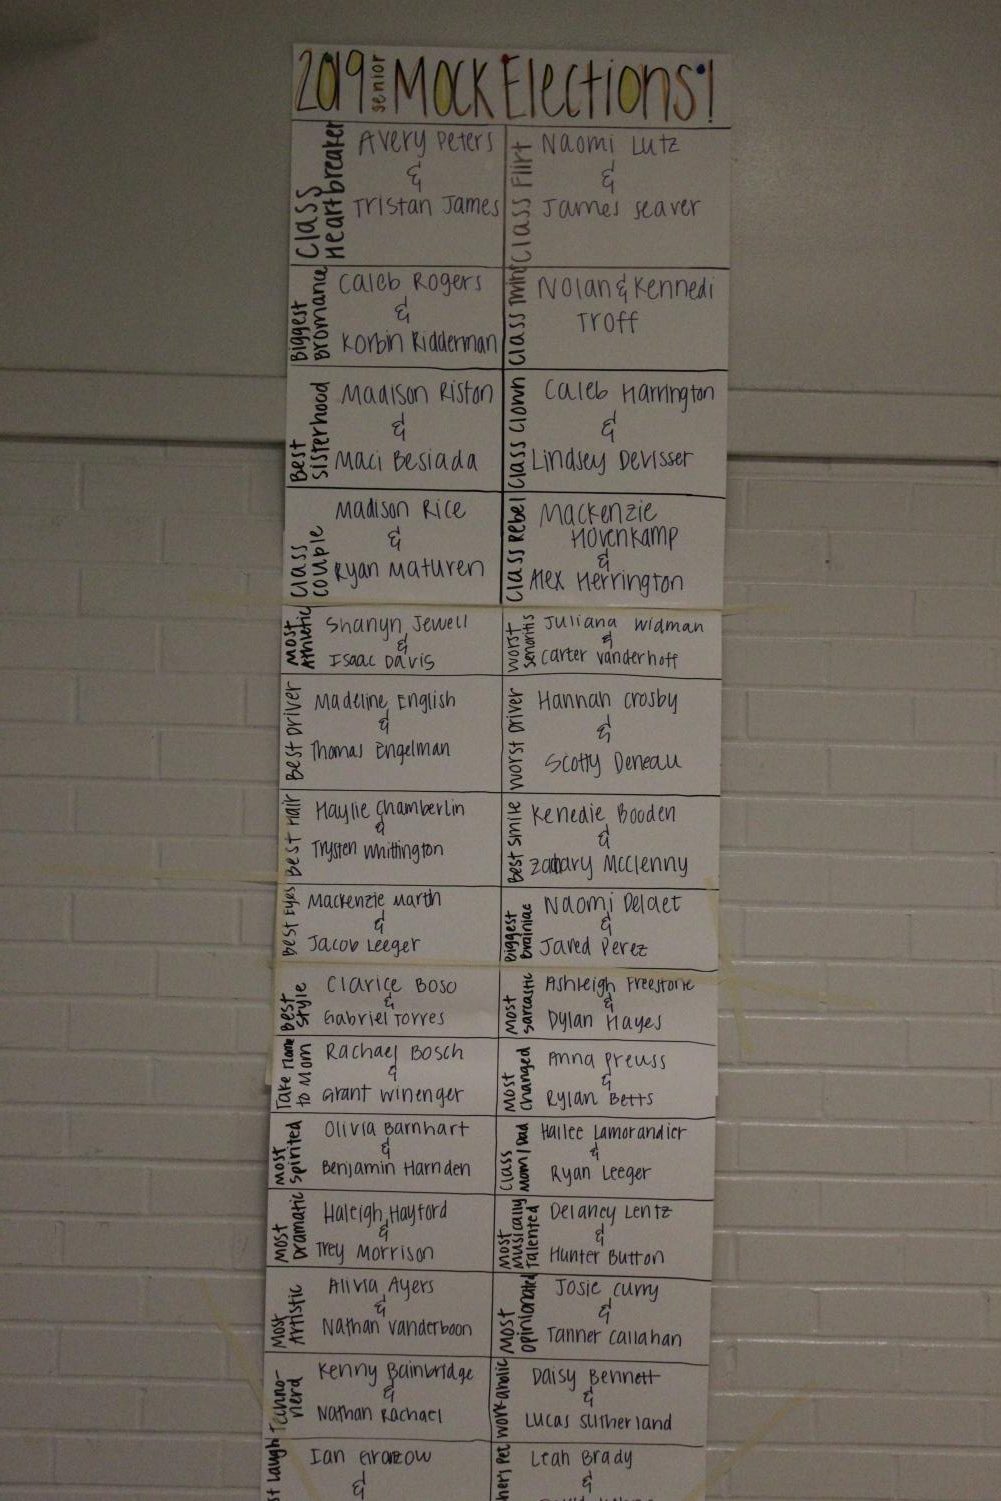 2019 senior Mock Elections!
Class Heartbreaker
Avery Peters
&
Tristan James
Class Flirt
Naomi Lutz
&
James Seaver
Biggest Bromance
Caleb Rogers
&
Korbin Ridderman
Class Twins
Nolan & Kennedi
Troff
Best Sisterhood
Madison Riston
&
Maci Besiada
Class Clown
Caleb Harrington
&
Lindsey Devisser
Class Couple
Madison Rice
&
Ryan Maturen
Class Rebel
Mackenzie
Hovenkamp
&
Alex Herrington
Most Athletic
Shanyn Jewell
&
Isaac Davis
Worst Senioritis
Juliana Widman
&
Carter Vanderhoff
Best Driver
Madeline English
&
Thomas Engelman
Worst Driver
Hannah Crosby
&
Scotty Deneau
Best Hair
Haylie Chamberlin
&
Trysten Whittington
Best Smile
Kenedie Booden
&
Zachary McClenny
Best Eyes
Mackenzie Marth
&
Jacob Leeger
Biggest Brainiac
Naomi Delaet
&
Jared Perez
Best Style
Clarice Boso
&
Gabriel Torres
Most Sarcastic
Ashleigh Freestone
&
Dylan Hayes
Take Home to Mom
Rachael Bosch
&
Grant Winenger
Most Changed
Anna Preuss
&
Rylan Betts
Most Spirited
Olivia Barnhart
&
Benjamin Harnden
Class Mom/Dad
Hailee Lamorandier
&
Ryan Leeger
Most Dramatic
Haleigh Hayford
&
Trey Morrison
Most Musically Talented
Delaney Lentz
&
Hunter Button
Most Artistic
Alivia Ayers
&
Nathan Vanderboon
Most Opinionated
Josie Curry
&
Tanner Callahan
Techno-nerd
Kenny Bainbridge
&
Nathan Rachael
Workaholic
Daisy Bennett
&
Lucas Sutherland
st Laugh
Ian
&
her's Pet
Leah Brady
&